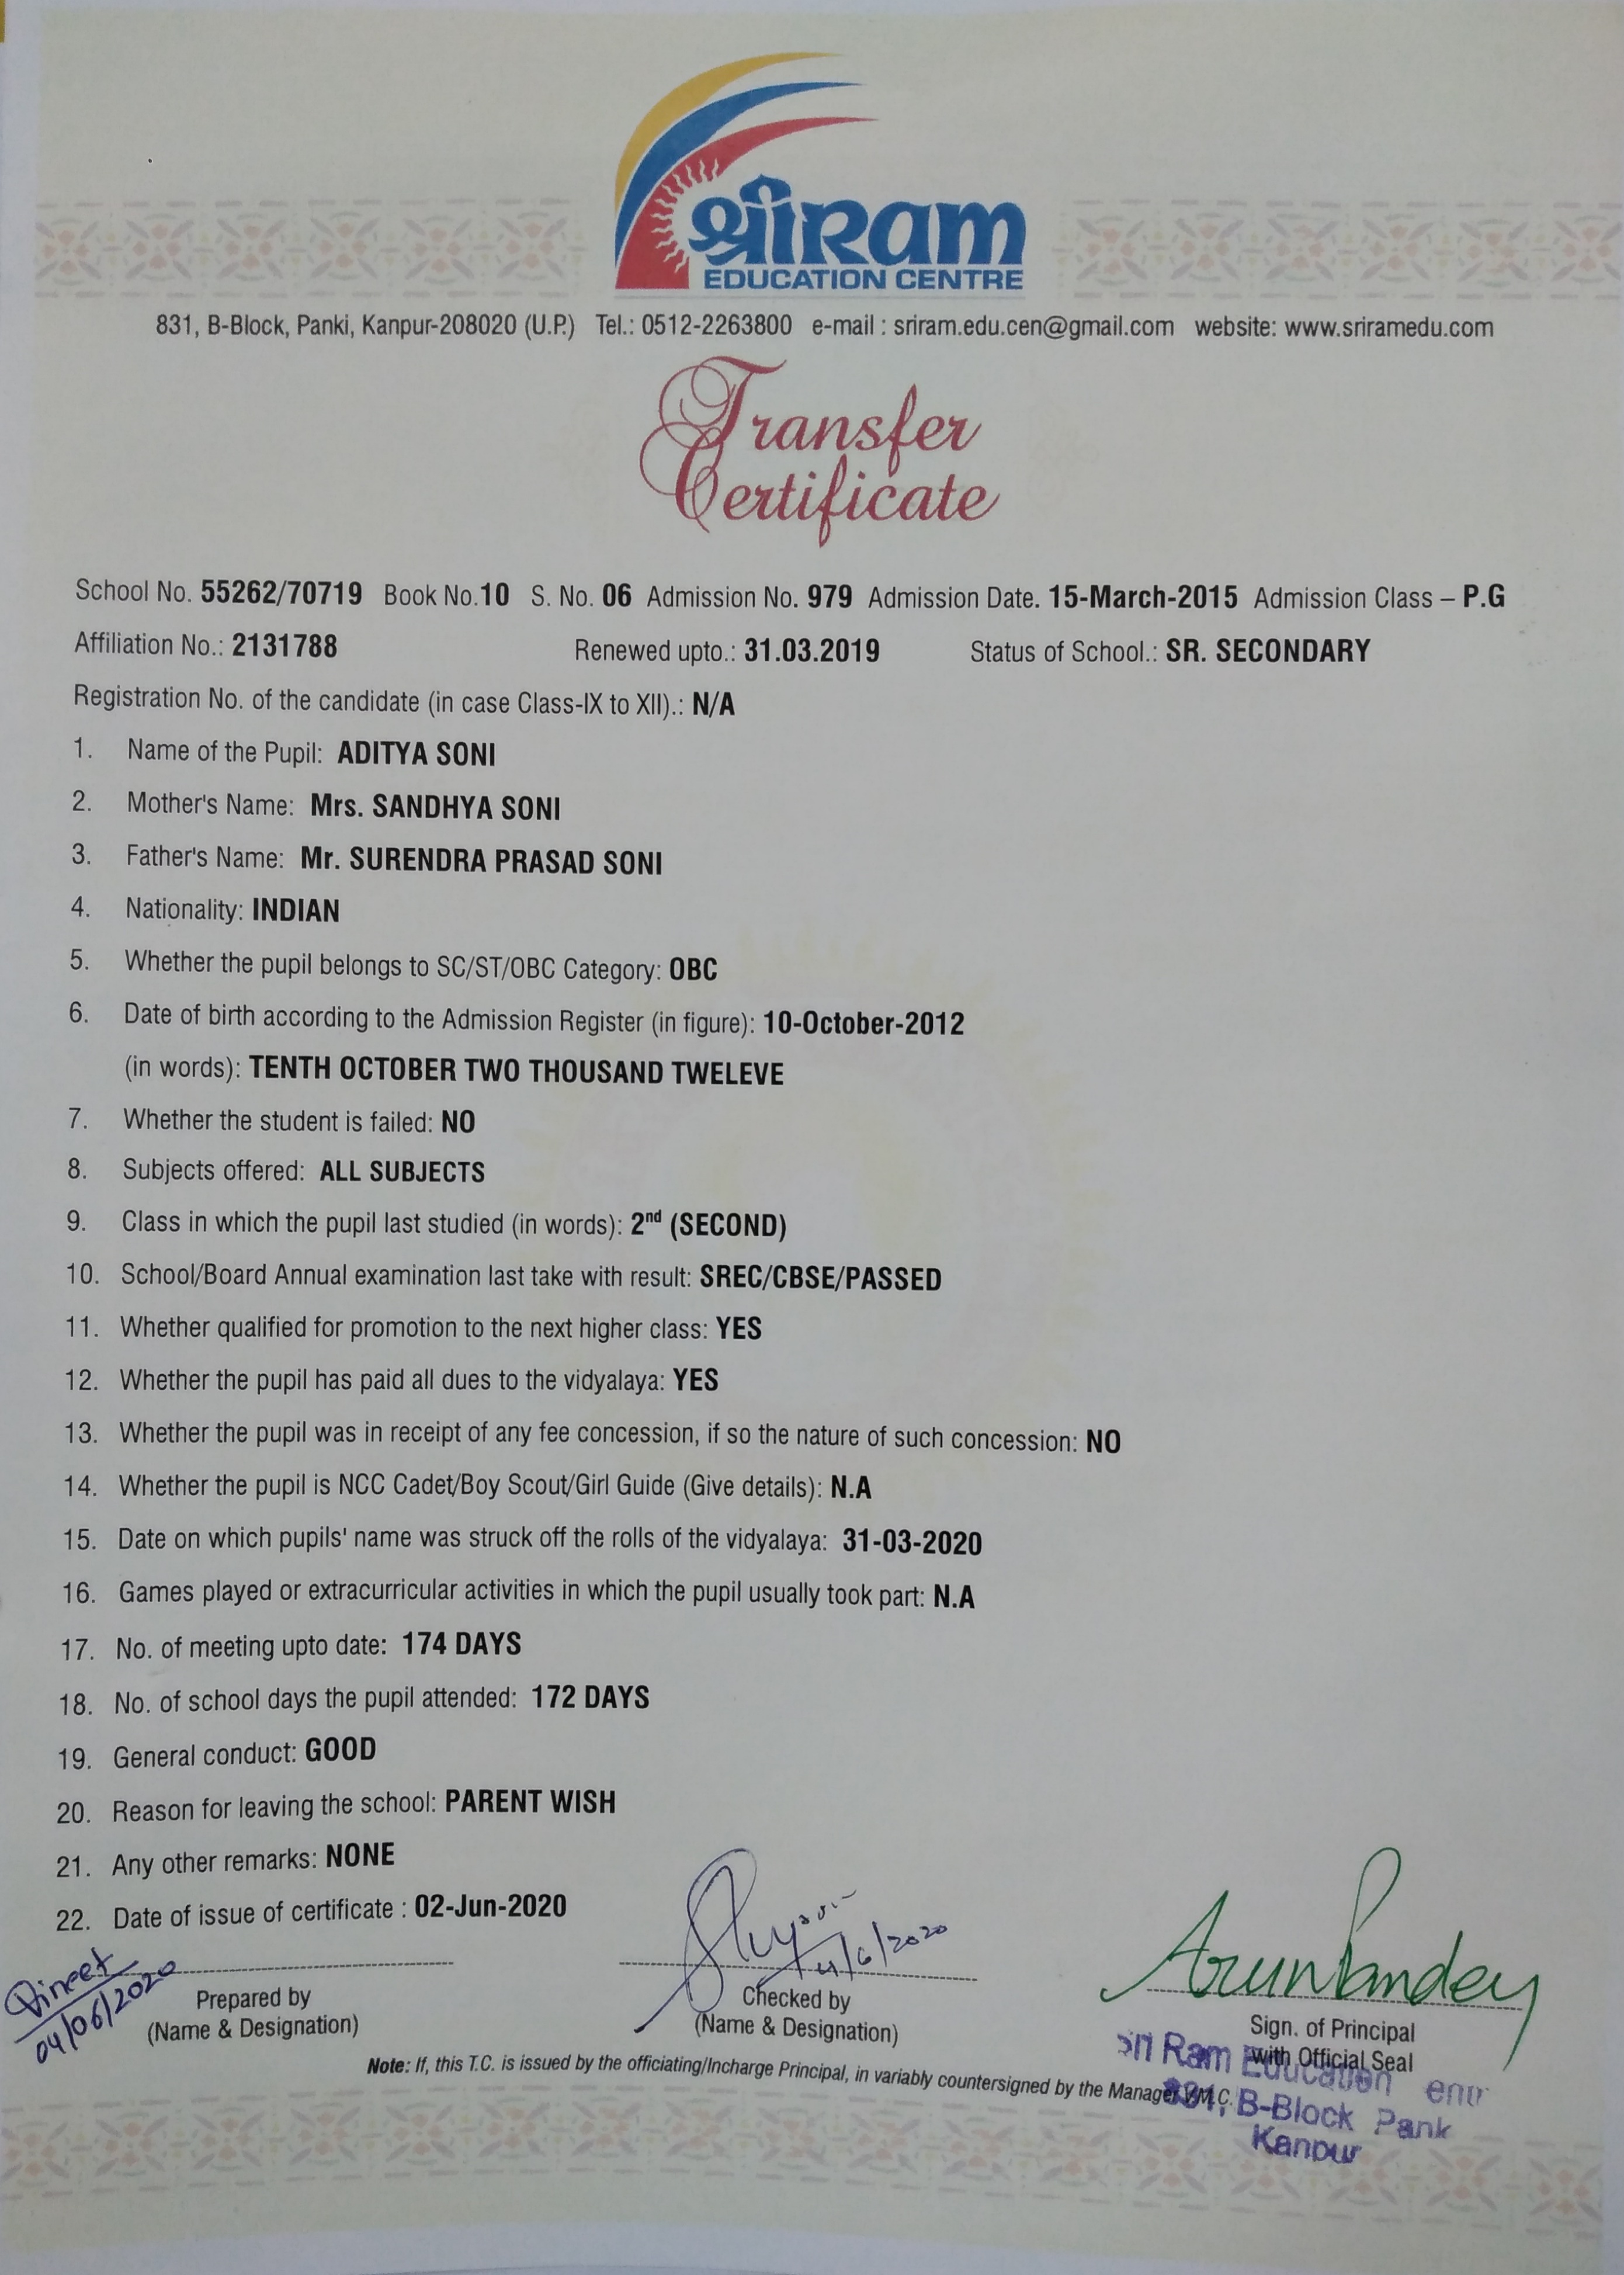 श्रीRam
EDUCATION CENTRE
831, B-Block, Panki, Kanpur-208020 (U.P.) Tel.: 0512-2263800 e-mail : sriram.edu.cen@gmail.com website: www.sriramedu.com
Transfer
Certificate
School No. 55262/70719 Book No.10 S. No. 06 Admission No. 979 Admission Date. 15-March-2015 Admission Class – P.G
Affiliation No.: 2131788 Renewed upto.: 31.03.2019 Status of School.: SR. SECONDARY
Registration No. of the candidate (in case Class-IX to XII).: N/A
1. Name of the Pupil: ADITYA SONI
2. Mother's Name: Mrs. SANDHYA SONI
3. Father's Name: Mr. SURENDRA PRASAD SONI
4. Nationality: INDIAN
5. Whether the pupil belongs to SC/ST/OBC Category: OBC
6. Date of birth according to the Admission Register (in figure): 10-October-2012
(in words): TENTH OCTOBER TWO THOUSAND TWELEVE
7. Whether the student is failed: NO
8. Subjects offered: ALL SUBJECTS
9. Class in which the pupil last studied (in words): 2nd (SECOND)
10. School/Board Annual examination last take with result: SREC/CBSE/PASSED
11. Whether qualified for promotion to the next higher class: YES
12. Whether the pupil has paid all dues to the vidyalaya: YES
13. Whether the pupil was in receipt of any fee concession, if so the nature of such concession: NO
14. Whether the pupil is NCC Cadet/Boy Scout/Girl Guide (Give details): N.A
15. Date on which pupils' name was struck off the rolls of the vidyalaya: 31-03-2020
16. Games played or extracurricular activities in which the pupil usually took part: N.A
17. No. of meeting upto date: 174 DAYS
18. No. of school days the pupil attended: 172 DAYS
19. General conduct: GOOD
20. Reason for leaving the school: PARENT WISH
21. Any other remarks: NONE
22. Date of issue of certificate : 02-Jun-2020
04/06/2020
4/6/2020
Arun Pandey
Prepared by
(Name & Designation)
Checked by
(Name & Designation)
Sign. of Principal
with Official Seal
Note: If, this T.C. is issued by the officiating/Incharge Principal, in variably countersigned by the Manager VM.C.
Ram Education
831, B-Block Pank
Kanpur